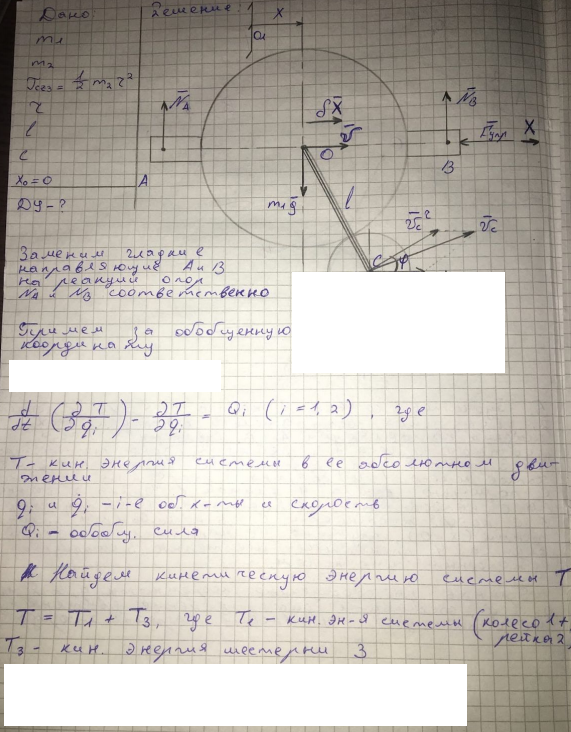 Дано
Решение:
m₁
m₂
Tсез = 1/2 m₂ r²
r
l
c
x₀=0
ДУ - ?
X
N̄A
N̄B
δX̄
v̄
O
F̄упр
X
A
B
m₁ḡ
l
v̄cʳ
v̄c
C
φ
Заменим гладкие
направляющие A и B
на реакции опор
NA и NB соответственно
Примем за обобщенную
координату
d/dt (∂T/∂q̇i) - ∂T/∂qi = Qi (i=1,2), где
T- кин. энергия системы в ее абсолютном дви-
жении
qi и q̇i - i-е об. к-ты и скорость
Qi - обобщ. сила
Найдем кинетическую энергию системы T
T = T₁ + T₃, где T₁ - кин. эн-я системы (колесо 1+
рейка 2)
T₃ - кин. энергия шестерни 3